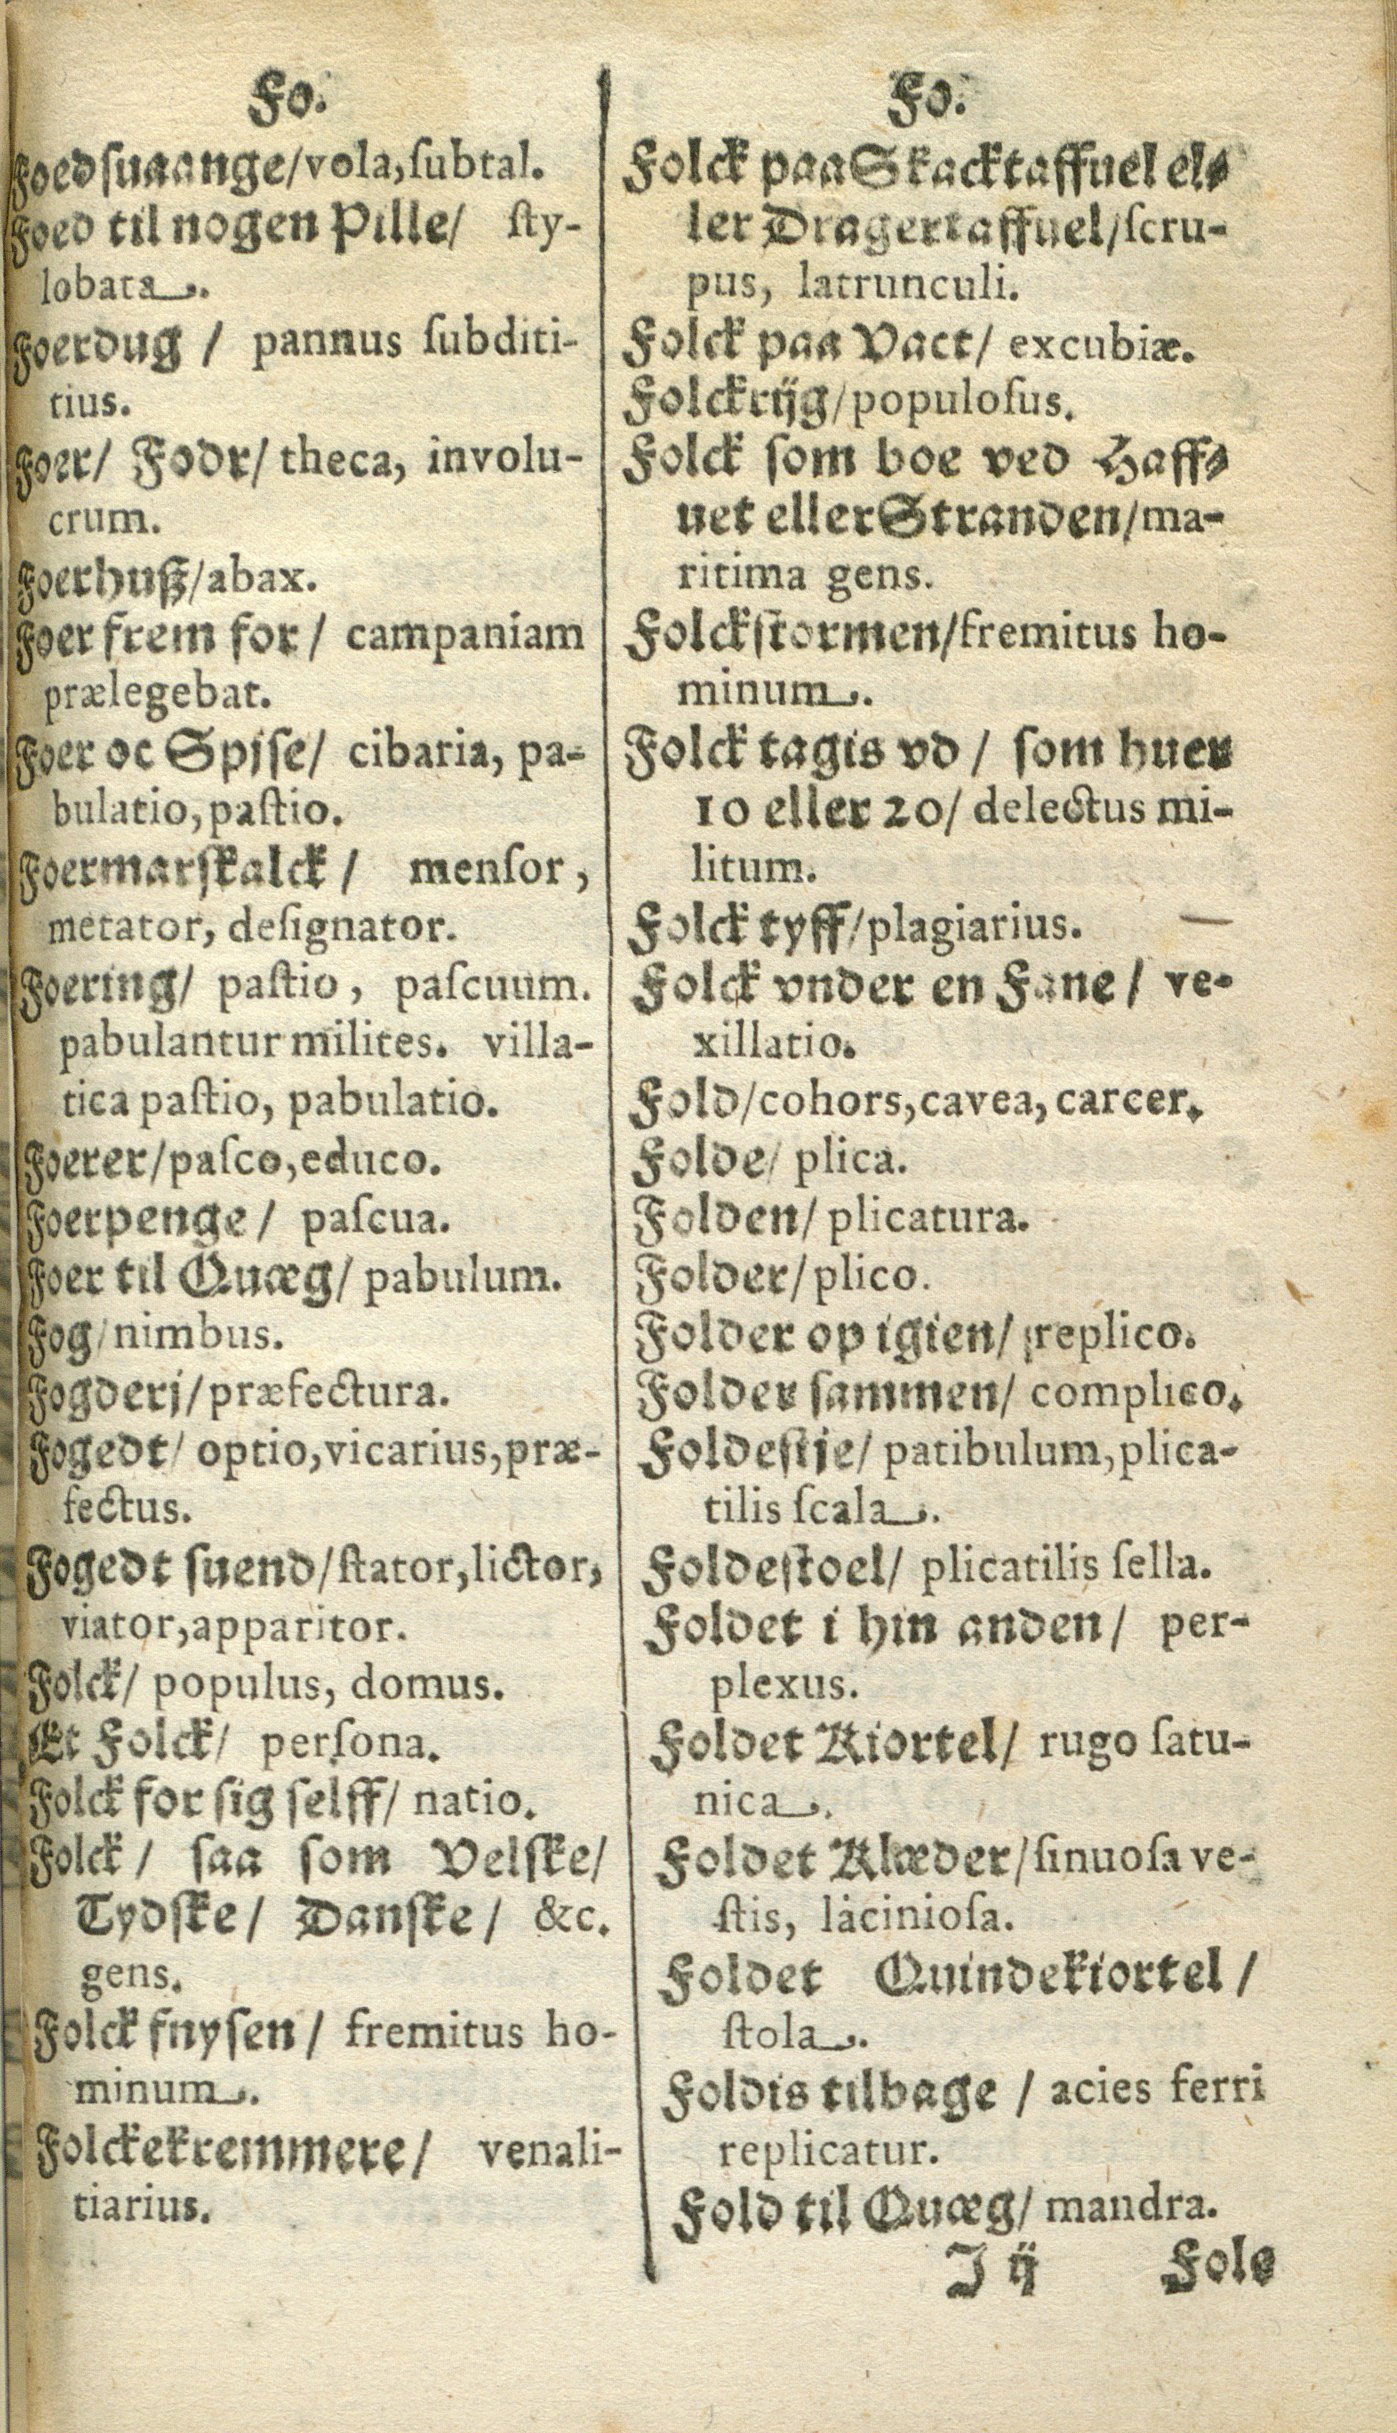 Fo.
Foedsuaange/vola,ſubtal.
Foed til nogen Pille/ ſty-
lobata.
Foerdug / pannus ſubditi-
tius.
Foer/ Fodr/ theca, involu-
crum.
Foerhuß/abax.
Foer frem for/ campaniam
prælegebat.
Foer oc Spjſe/ cibaria, pa-
bulatio, paſtio.
Foermarſkalck/ menſor,
metator, deſignator.
Foering/ paſtio, paſcuum.
pabulantur milites. villa-
tica paſtio, pabulatio.
Foerer/paſco,educo.
Foerpenge/ paſcua.
Foer til Quæg/ pabulum.
Fog/nimbus.
Fogderj/præfectura.
Fogedt/ optio,vicarius,præ-
fectus.
Fogedt ſuend/ſtator,lictor,
viator,apparitor.
Folck/ populus, domus.
Et Folck/ perſona.
Folck for ſig ſelff/ natio.
Folck/ ſaa ſom Velſke/
Tydſke/ Danſke/ &c.
gens.
Folck fnyſen/ fremitus ho-
minum.
Folckekremmere/ venali-
tiarius.
Fo.
Folck paa Skacktaffuel el-
ler Dragertaffuel/ſcru-
pus, latrunculi.
Folck paa Vact/ excubiæ.
Folckrijg/populoſus.
Folck ſom boe ved Haff-
uet eller Stranden/ma-
ritima gens.
Folckſtormen/fremitus ho-
minum.
Folck tagis vd/ ſom huer
10 eller 20/ delectus mi-
litum.
Folck tyff/plagiarius.
Folck vnder en Fane/ ve-
xillatio.
Fold/cohors,cavea, carcer.
Folde/ plica.
Folden/ plicatura.
Folder/plico.
Folder op igien/ replico.
Folder ſammen/ complico.
Foldeſtje/ patibulum,plica-
tilis ſcala.
Foldeſtoel/ plicatilis ſella.
Foldet i hin anden/ per-
plexus.
Foldet Kiortel/ rugo ſatu-
nica.
Foldet Klæder/ſinuoſa ve-
ſtis, lacinioſa.
Foldet Quindekiortel/
ſtola.
Foldis tilbage/ acies ferri
replicatur.
Fold til Quæg/ mandra.
J ij Fole